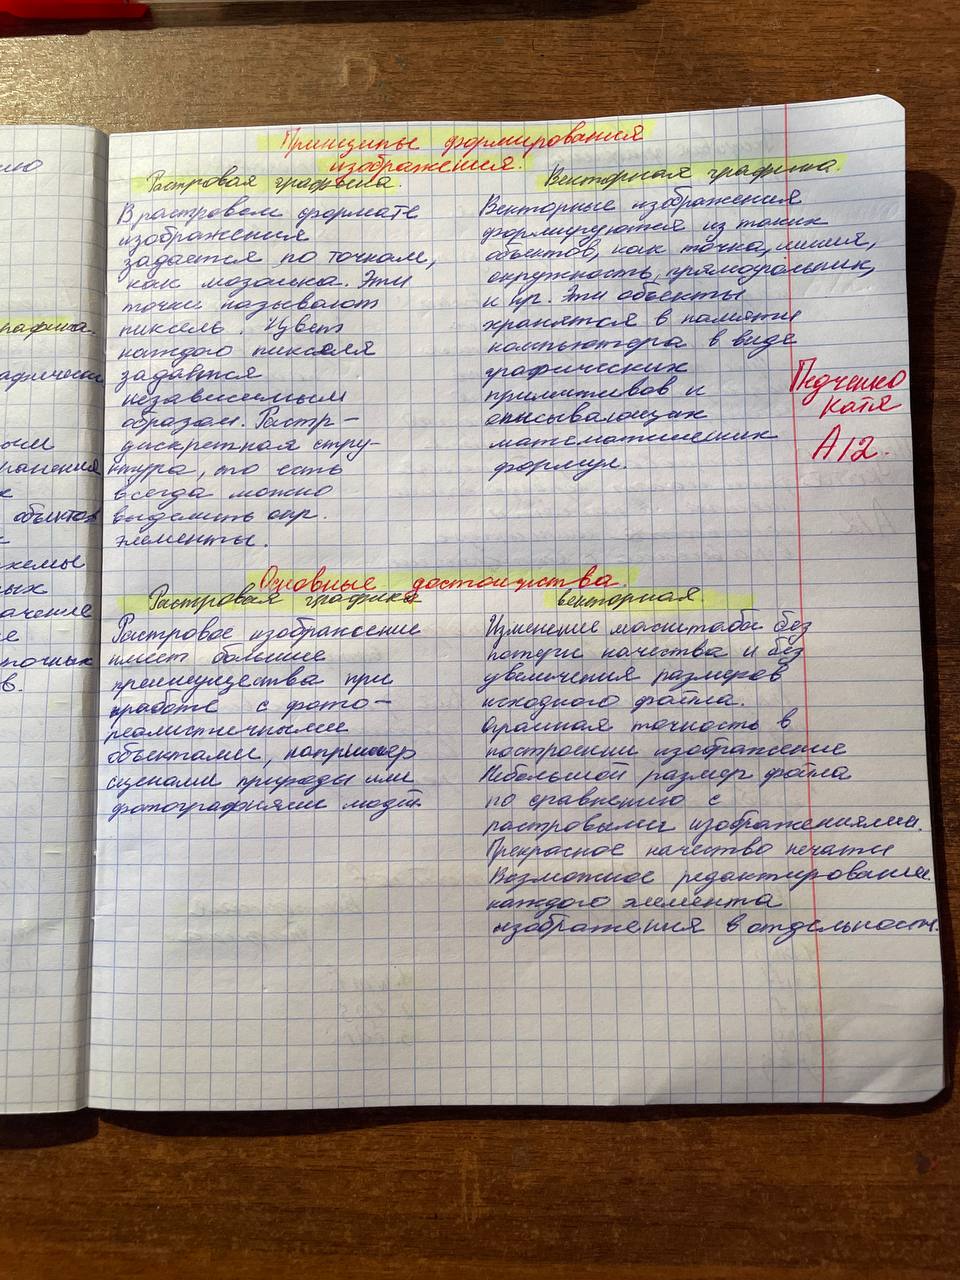 Принципы формирования
изображения.
Растровая графика.
В растровом формате
изображения
задается по точкам,
как мозаика. Эти
точки называют
пиксель. Цвет
каждого пикселя
задаётся
независимым
образом. Растр -
дискретная стру-
ктура, то есть
всегда можно
выделить опр.
элементы.
Векторная графика.
Векторные изображения
формируются из таких
объектов, как точка, линия,
окружность, прямоугольник,
и пр. Эти объекты
хранятся в памяти
компьютера в виде
графических
примитивов и
описывающих
математических
формул.
Педченко
Катя
А12.
Основные достоинства.
Растровая графика
Растровое изображение
имеет большие
преимущества при
работе с фото-
реалистичными
объектами, например
сценами природы или
фотографиями людей.
векторная.
Изменение масштаба без
потери качества и без
увеличения размеров
исходного файла.
Огромная точность в
построении изображение
Небольшой размер файла
по сравнению с
растровыми изображениями.
Прекрасное качество печати
Возможное редактирования
каждого элемента
изображения в отдельности.
объектов